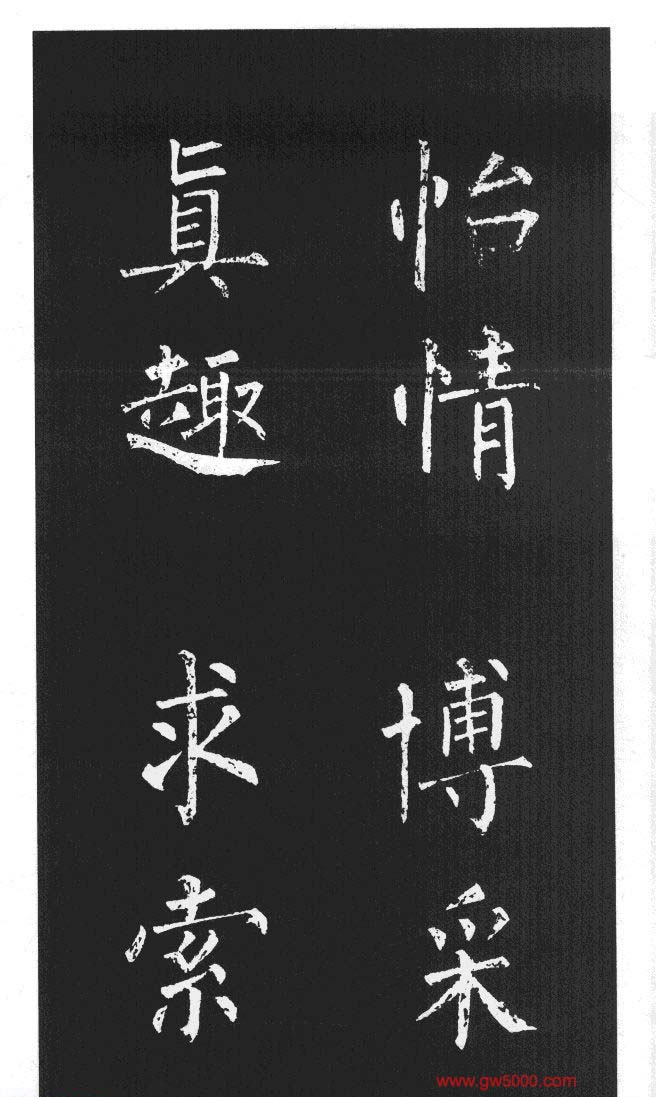 怡情博采
眞趣求索
www.gw5000.com